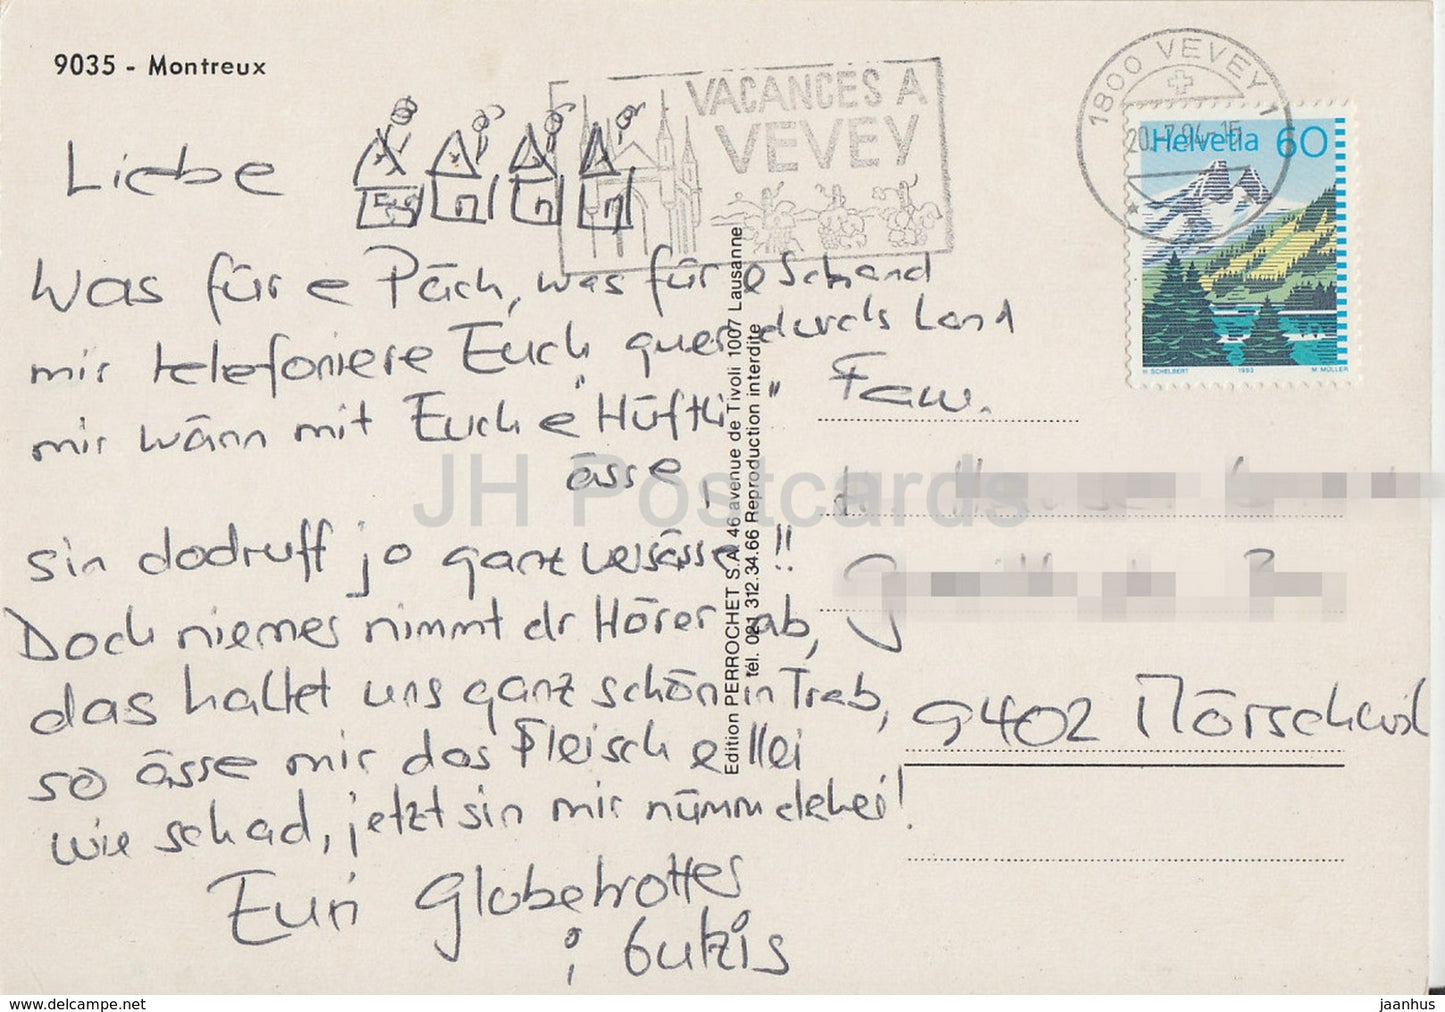 9035 - Montreux
VACANCES A
VEVEY
1800 VEVEY 1
20.-7.94-15
Helvetia 60
H. SCHELBERT 1993 M. MÜLLER
Liebe
Was für e Päch, was für e Schand
mir telefoniere Euch quer durchs Land
mir wänn mit Euch e "Hüftli"
ässe,
sin dodruff jo ganz versässe!!
Doch niemes nimmt dr Hörer ab,
das haltet uns ganz schön in Trab,
so ässe mir das Fleisch ellei
wie schad, jetzt sin mir nümm dehei!
Euri Globetrottes
Gutzis
Edition PERROCHET S.A. 46 avenue de Tivoli 1007 Lausanne
tél. 021 312.34.66 Reproduction interdite
Fam.
9402 Mörschwil
JH Postcards
www.delcampe.net
jaanhus